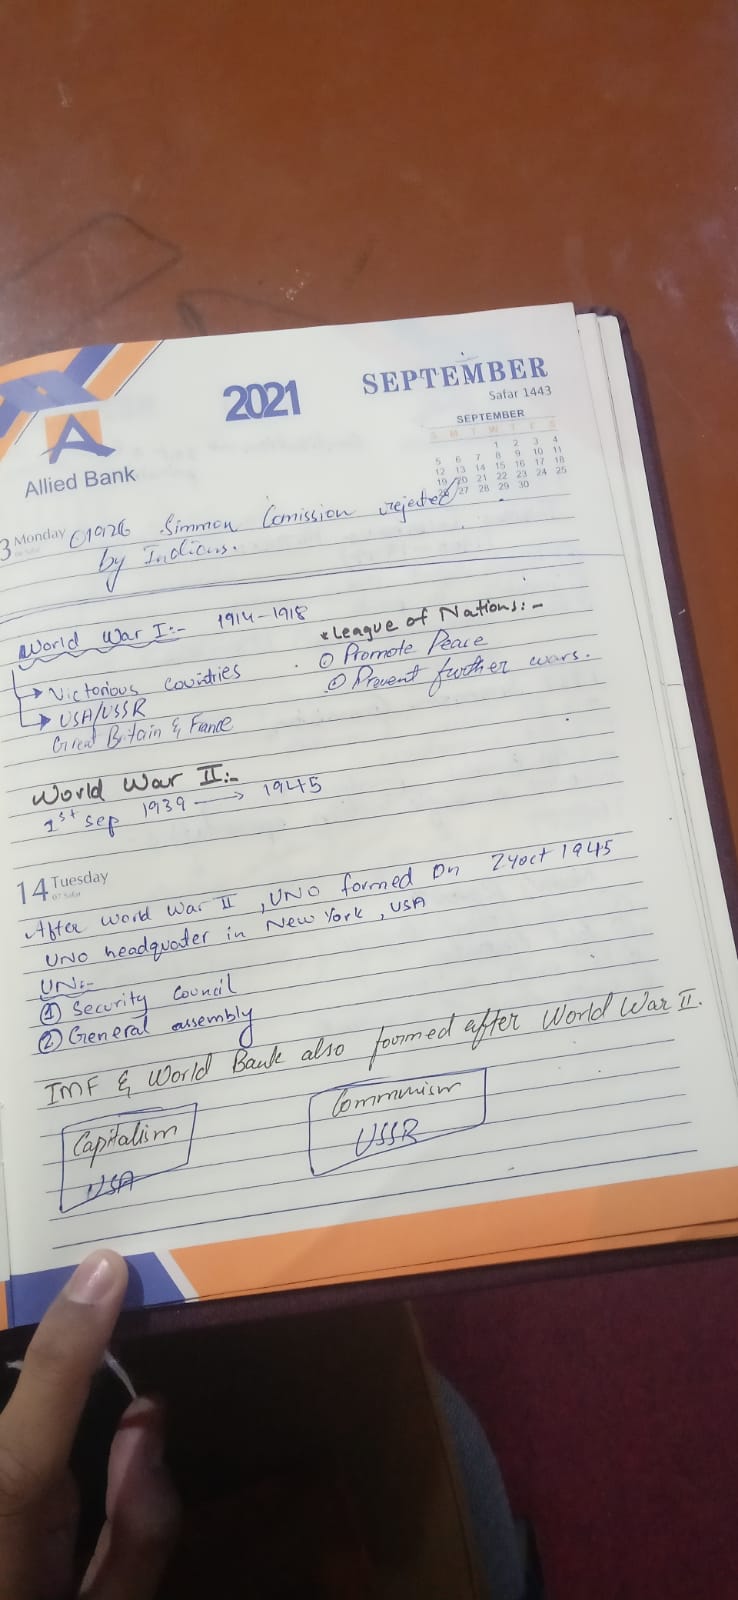 2021
SEPTEMBER
Safar 1443
SEPTEMBER
S M T W T F S
1 2 3 4
5 6 7 8 9 10 11
12 13 14 15 16 17 18
19 20 21 22 23 24 25
27 28 29 30
A
Allied Bank
3 Monday
1926 Simmon Comission rejected
by Indians.
World War I:- 1914-1918
→ Victorious Countries
→ USA/USSR
Great Britain & France
* League of Nations:-
① Promote Peace
② Prevent further wars.
World War II:-
1st sep 1939 → 1945
14 Tuesday
After World War II, UNO formed on 24 oct 1945
UNO headquater in New York, USA
UN:-
① Security Council
② General assembly
IMF & World Bank also formed after World War II.
Capitalism
USA
Communism
USSR